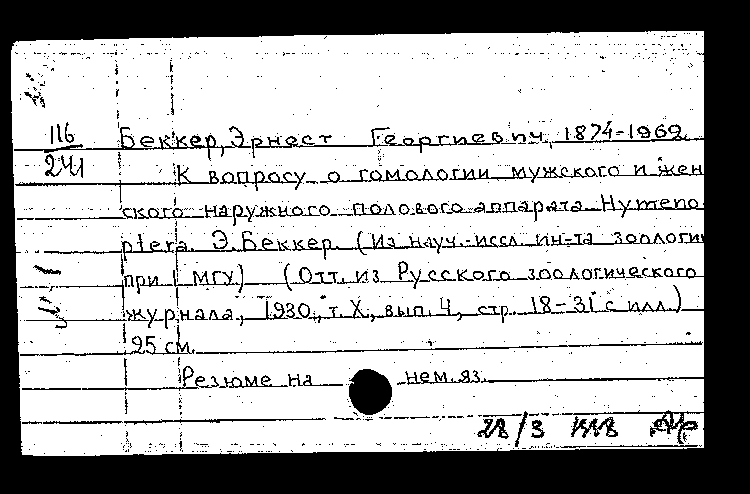 116
241
Беккер, Эрнест Георгиевич, 1874-1962.
К вопросу о гомологии мужского и жен
ского наружного полового аппарата Hymeno
ptera. Э. Беккер. (Из науч.-иссл. ин-та зоологии
при 1 МГУ) (Отт. из Русского зоологического
журнала, 1930, т. X, вып. 4, стр. 18-31 с илл.)
25 см.
Резюме на нем. яз.
28/3